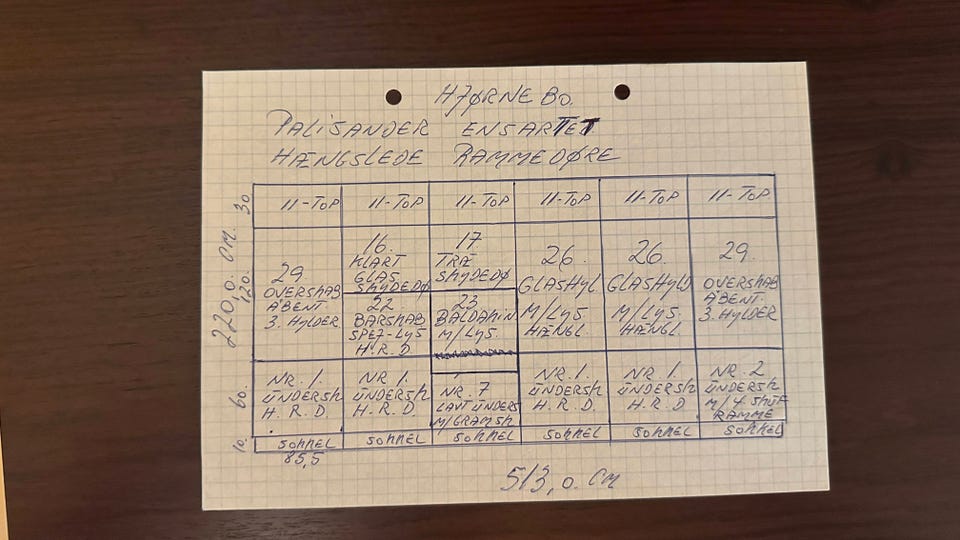 HJØRNE BO.
PALISANDER ENSARTET
HÆNGSLEDE RAMMEDØRE
11-TOP 11-TOP 11-TOP 11-TOP 11-TOP 11-TOP
29
OVERSKAB
ÅBENT
3. HYLDER
16.
KLART
GLAS
SKYDEDØ
22.
BARSKAB
SPEJ-LYS
H.R.D
17.
TRÆ
SKYDEDØ
23
BALDAKIN
M/LYS.
26.
GLASHYL.
M/LYS
HÆNGL.
26.
GLASHYLD
M/LYS.
HÆNGL.
29.
OVERSKAB
ÅBENT.
3. HYLDER
NR. 1.
UNDERSK
H.R.D.
NR. 1.
UNDERSK
H.R.D.
NR. 7
LAVT UNDERS
M/GRAMSK
NR. 1.
UNDERSK
H.R.D.
NR. 1.
UNDERSK
H.R.D
NR. 2
UNDERSK
M/4. SKUF
RAMME
SOKKEL SOKKEL SOKKEL SOKKEL SOKKEL SOKKEL
85,5
513,0. CM
220,0. CM.
30
120.
60.
10.